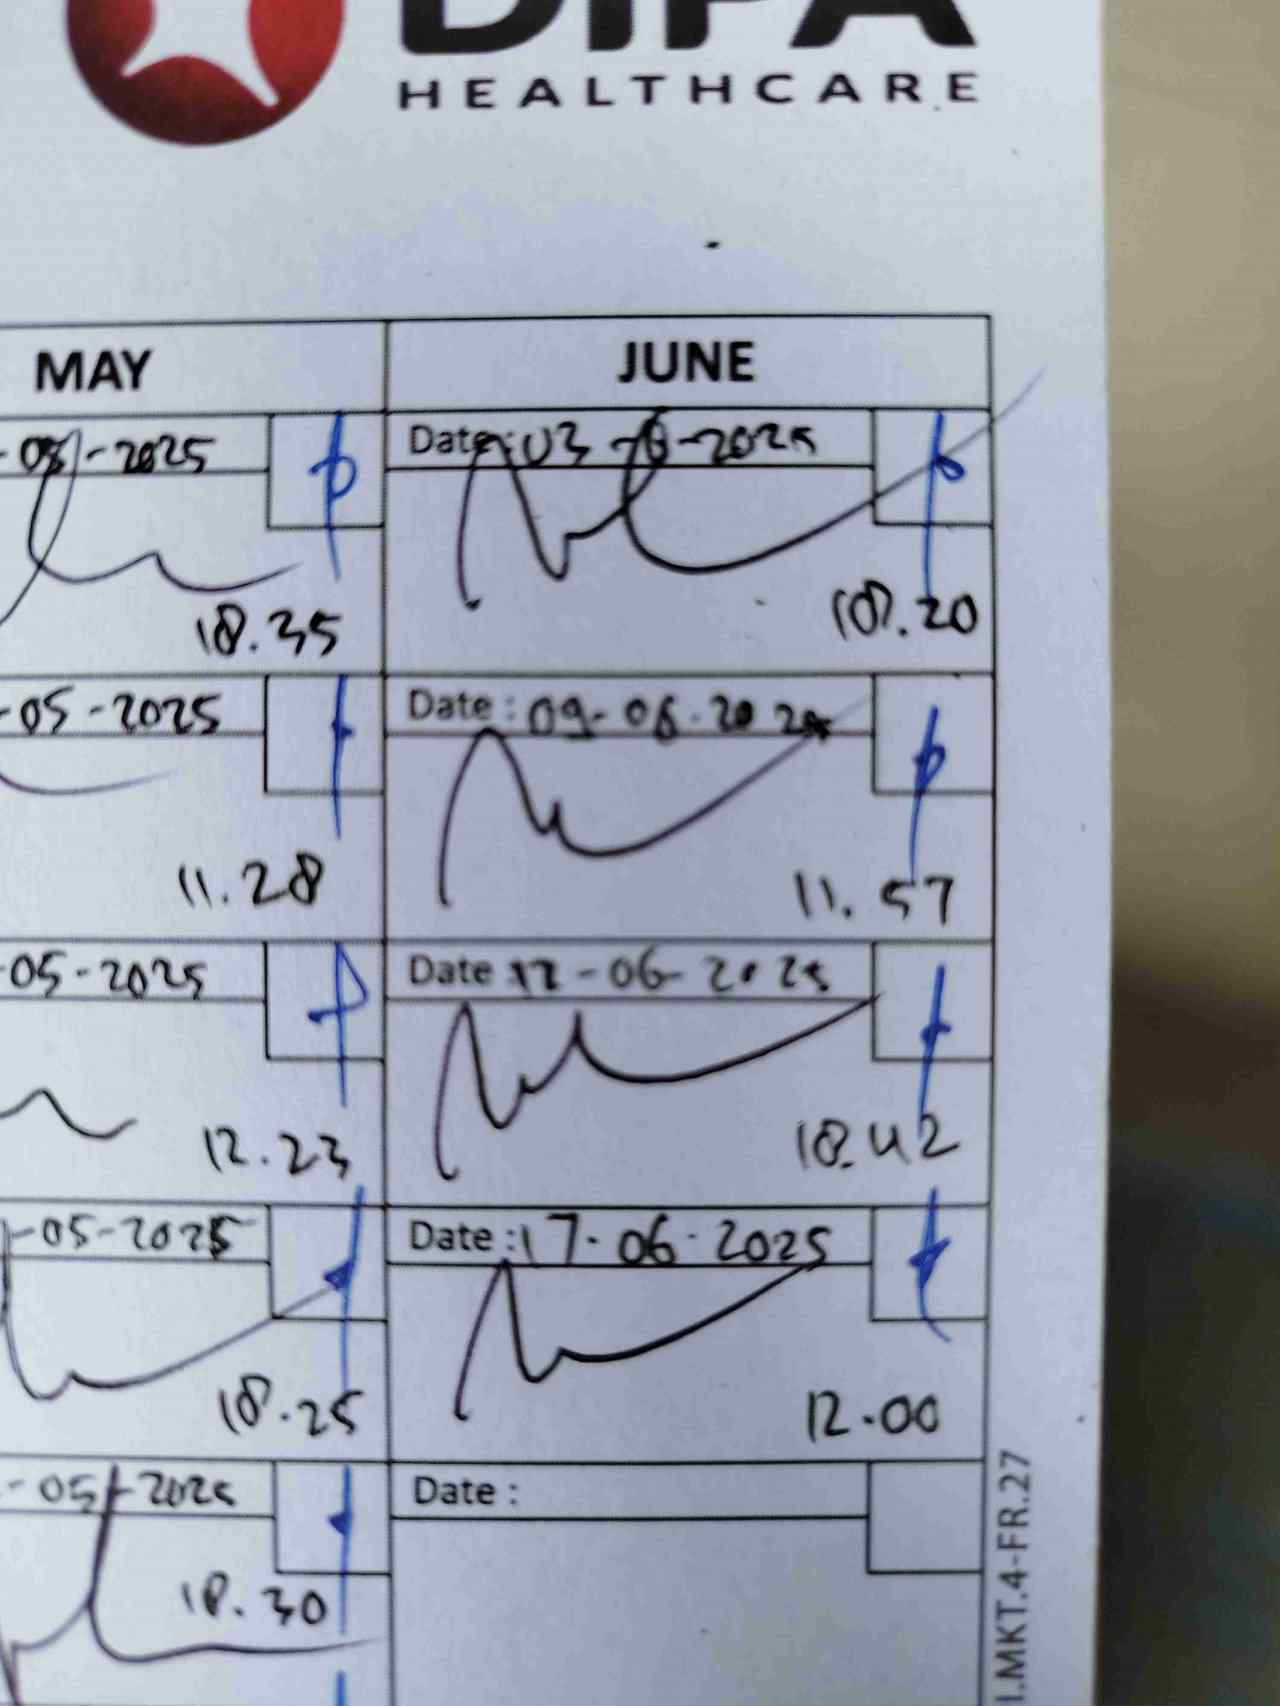 DIPA
HEALTHCARE
MAY
JUNE
-2025
Date : 03-6-2025
18.35
18.20
-05-2025
Date : 09-06-2025
11.28
11.57
-05-2025
Date : 12-06-2025
12.23
18.42
-05-2025
Date : 17-06-2025
18.25
12.00
-05-2025
Date :
18.30
I.MKT.4-FR.27